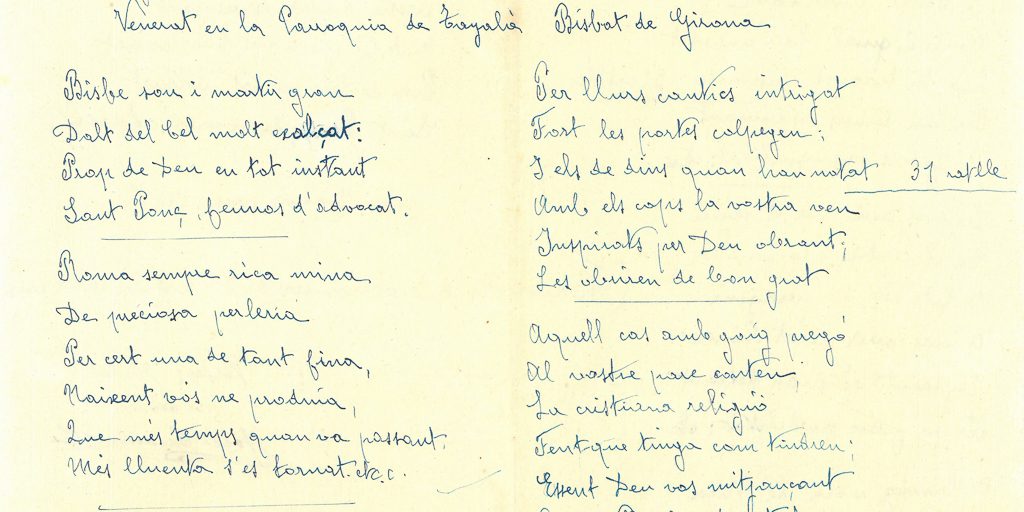 Venerat en la Parroquia de Tayalà Bisbat de Girona
Bisbe sou i martir gran
Dalt del Cel molt exalçat:
Prop de Deu en tot instant
Sant Ponç, feunos d'advocat.
Roma sempre rica mina
De preciosa perleria
Per cert una de tant fina,
Naixent vós ne produia,
Que més temps quan va passant
Més lluenta s'es tornat. etc.c.
Per llurs cantics intrigat
Fort les portes colpegen:
I els de dins quan han notat 31 ratlle
Amb els cops la vostra veu
Inspirats per Deu obrant;
Les obriren de bon grat
Aquell cas amb goig pregó
Al vostre pare conteu
La cristiana religió
Fent que tinga com tindreu;
Essent Deu vos mitjançant